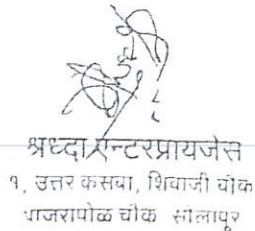 श्रध्दा एन्टरप्रायजेस
१, उत्तर कसबा, शिवाजी चौक
पाजरापोळ चौक सोलापूर